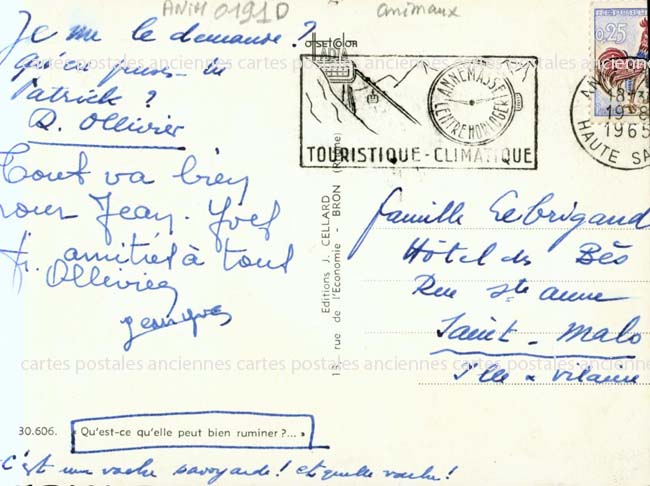 ANIM 0191 D
animaux
Je me le demande ?
qu'en penses-tu
Patrick ?
R. Ollivier
Tout va bien
pour Jean-Yves
amitiés à tous
Ollivier
jean yves
offset color
ANNEMASSE
CENTRE HORLOGER
TOURISTIQUE-CLIMATIQUE
0,25
18H
19-8
1965
HAUTE SA
Editions J. CELLARD
18, rue de l'Economie - BRON (Rhône)
famille Lebrigand
Hôtel des Bés
Rue Ste anne
Saint-Malo
Ille & vilaine
cartes postales anciennes cartes postales anciennes cartes postales anciennes
cartes postales anciennes cartes postales anciennes cartes postales anciennes
30.606. « Qu'est-ce qu'elle peut bien ruminer ?... »
C'est une vache savoyarde ! et quelle vache !